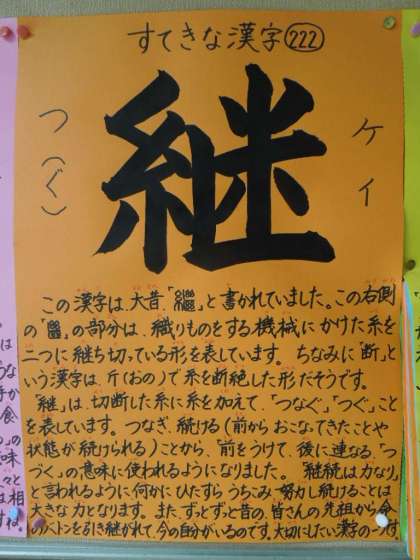 すてきな漢字222
継
つ(ぐ)
ケイ
この漢字は、大昔「繼」と書かれていました。この右側
の「𢇍」の部分は、織りものをする機械にかけた糸を
二つに継ち切っている形を表しています。ちなみに「断」と
いう漢字は、斤(おの)で糸を断絶した形だそうです。
「継」は、切断した糸に糸を加えて、「つなぐ」「つぐ」こと
を表しています。つなぎ、続ける(前からおこなてきたことや
状態が続けられる)ことから、「前をうけて、後に連なる」「つ
づく」の意味に使われるようになりました。「継続は力なり」
と言われるように何かにひたすらうちこみ、努力し続けることは
大きな力となります。また、ずっとずっと昔の、皆さんの先祖から命
のバトンを引き継がれて、今の自分がいるのです。大切にしたい漢字の一つです